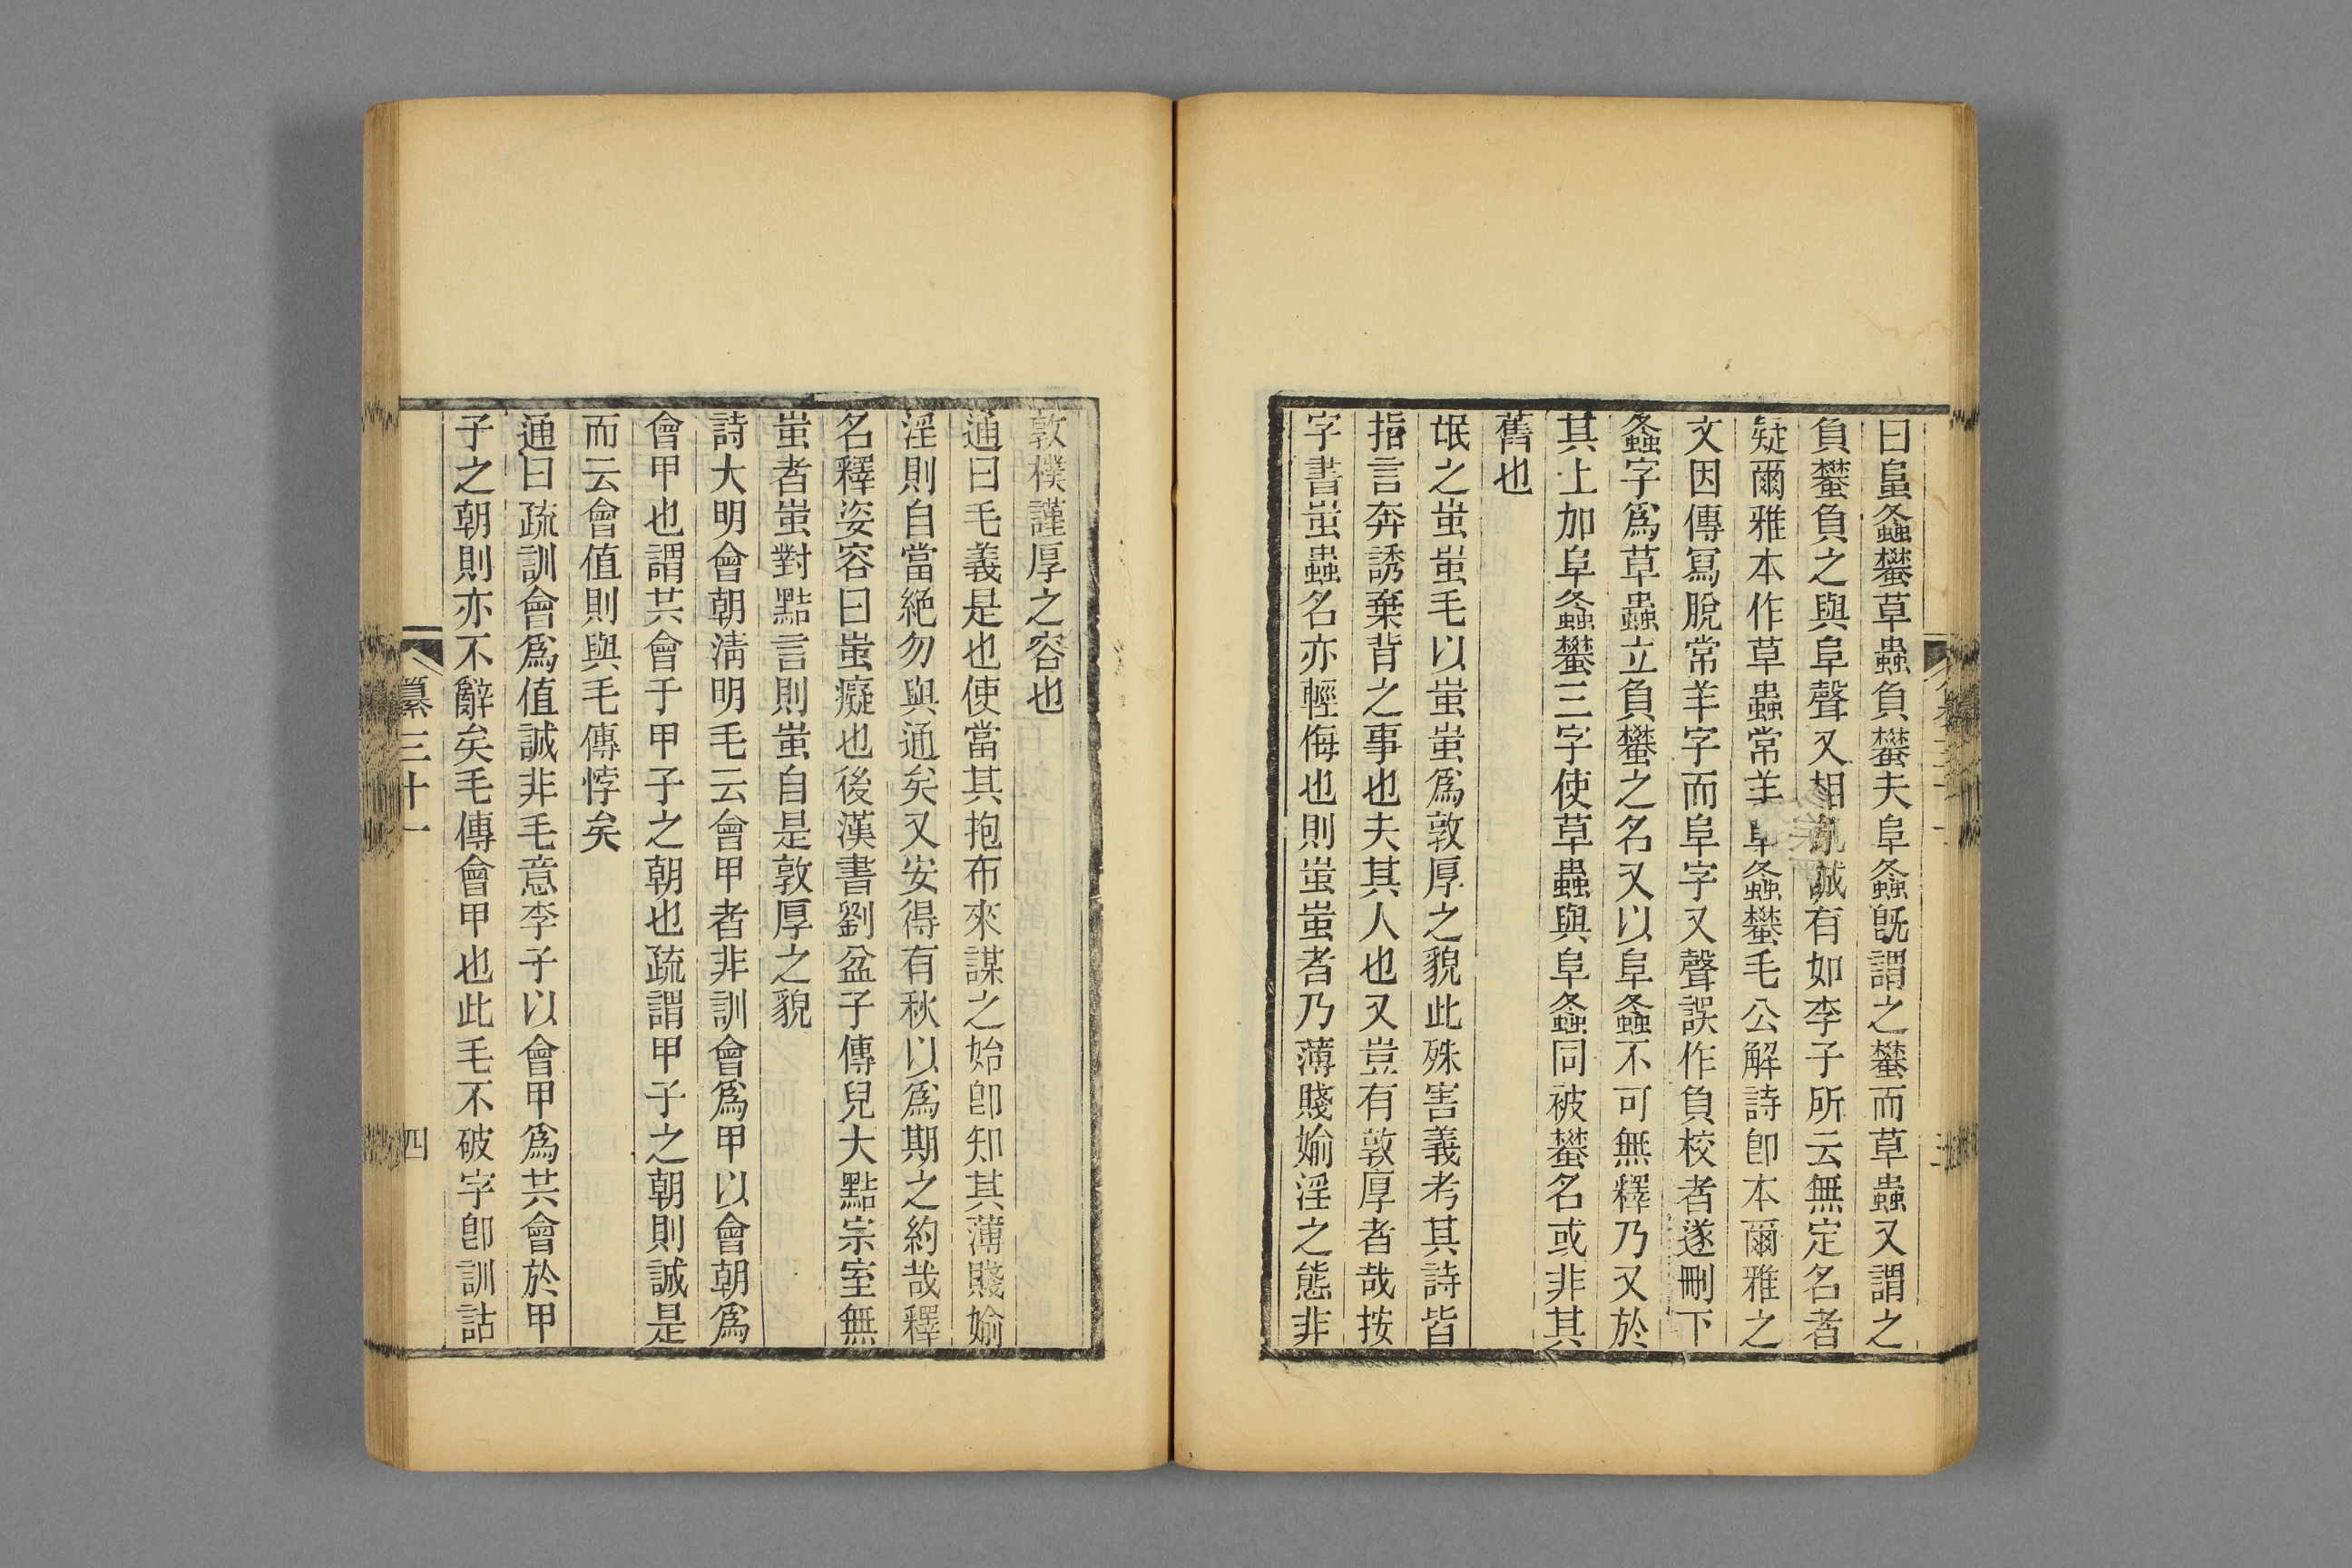 曰𧒂螽蠜草蟲負蠜夫阜螽旣謂之蠜而草蟲又謂之
負蠜負之與阜聲又相亂誠有如李子所云無定名者
疑爾雅本作草蟲常羊阜螽蠜毛公解詩卽本爾雅之
文因傳寫脫常羊字而阜字又聲誤作負校者遂刪下
螽字爲草蟲立負蠜之名又以阜螽不可無釋乃又於
其上加阜螽蠜三字使草蟲與阜螽同被蠜名或非其
舊也
氓之蚩蚩毛以蚩蚩爲敦厚之貌此殊害義考其詩皆
指言奔誘棄背之事也夫其人也又豈有敦厚者哉按
字書蚩蟲名亦輕侮也則蚩蚩者乃薄賤婾淫之態非
敦樸謹厚之容也
通曰毛義是也使當其抱布來謀之始卽知其薄賤婾
淫則自當絶勿與通矣又安得有秋以爲期之約哉釋
名釋姿容曰蚩癡也後漢書劉盆子傳兒大黠宗室無
蚩者蚩對黠言則蚩自是敦厚之貌
詩大明會朝淸明毛云會甲者非訓會爲甲以會朝爲
會甲也謂共會于甲子之朝也疏謂甲子之朝則誠是
而云會值則與毛傳悖矣
通曰疏訓會爲值誠非毛意李子以會甲爲共會於甲
子之朝則亦不辭矣毛傳會甲也此毛不破字卽訓詁
纂三十一
四